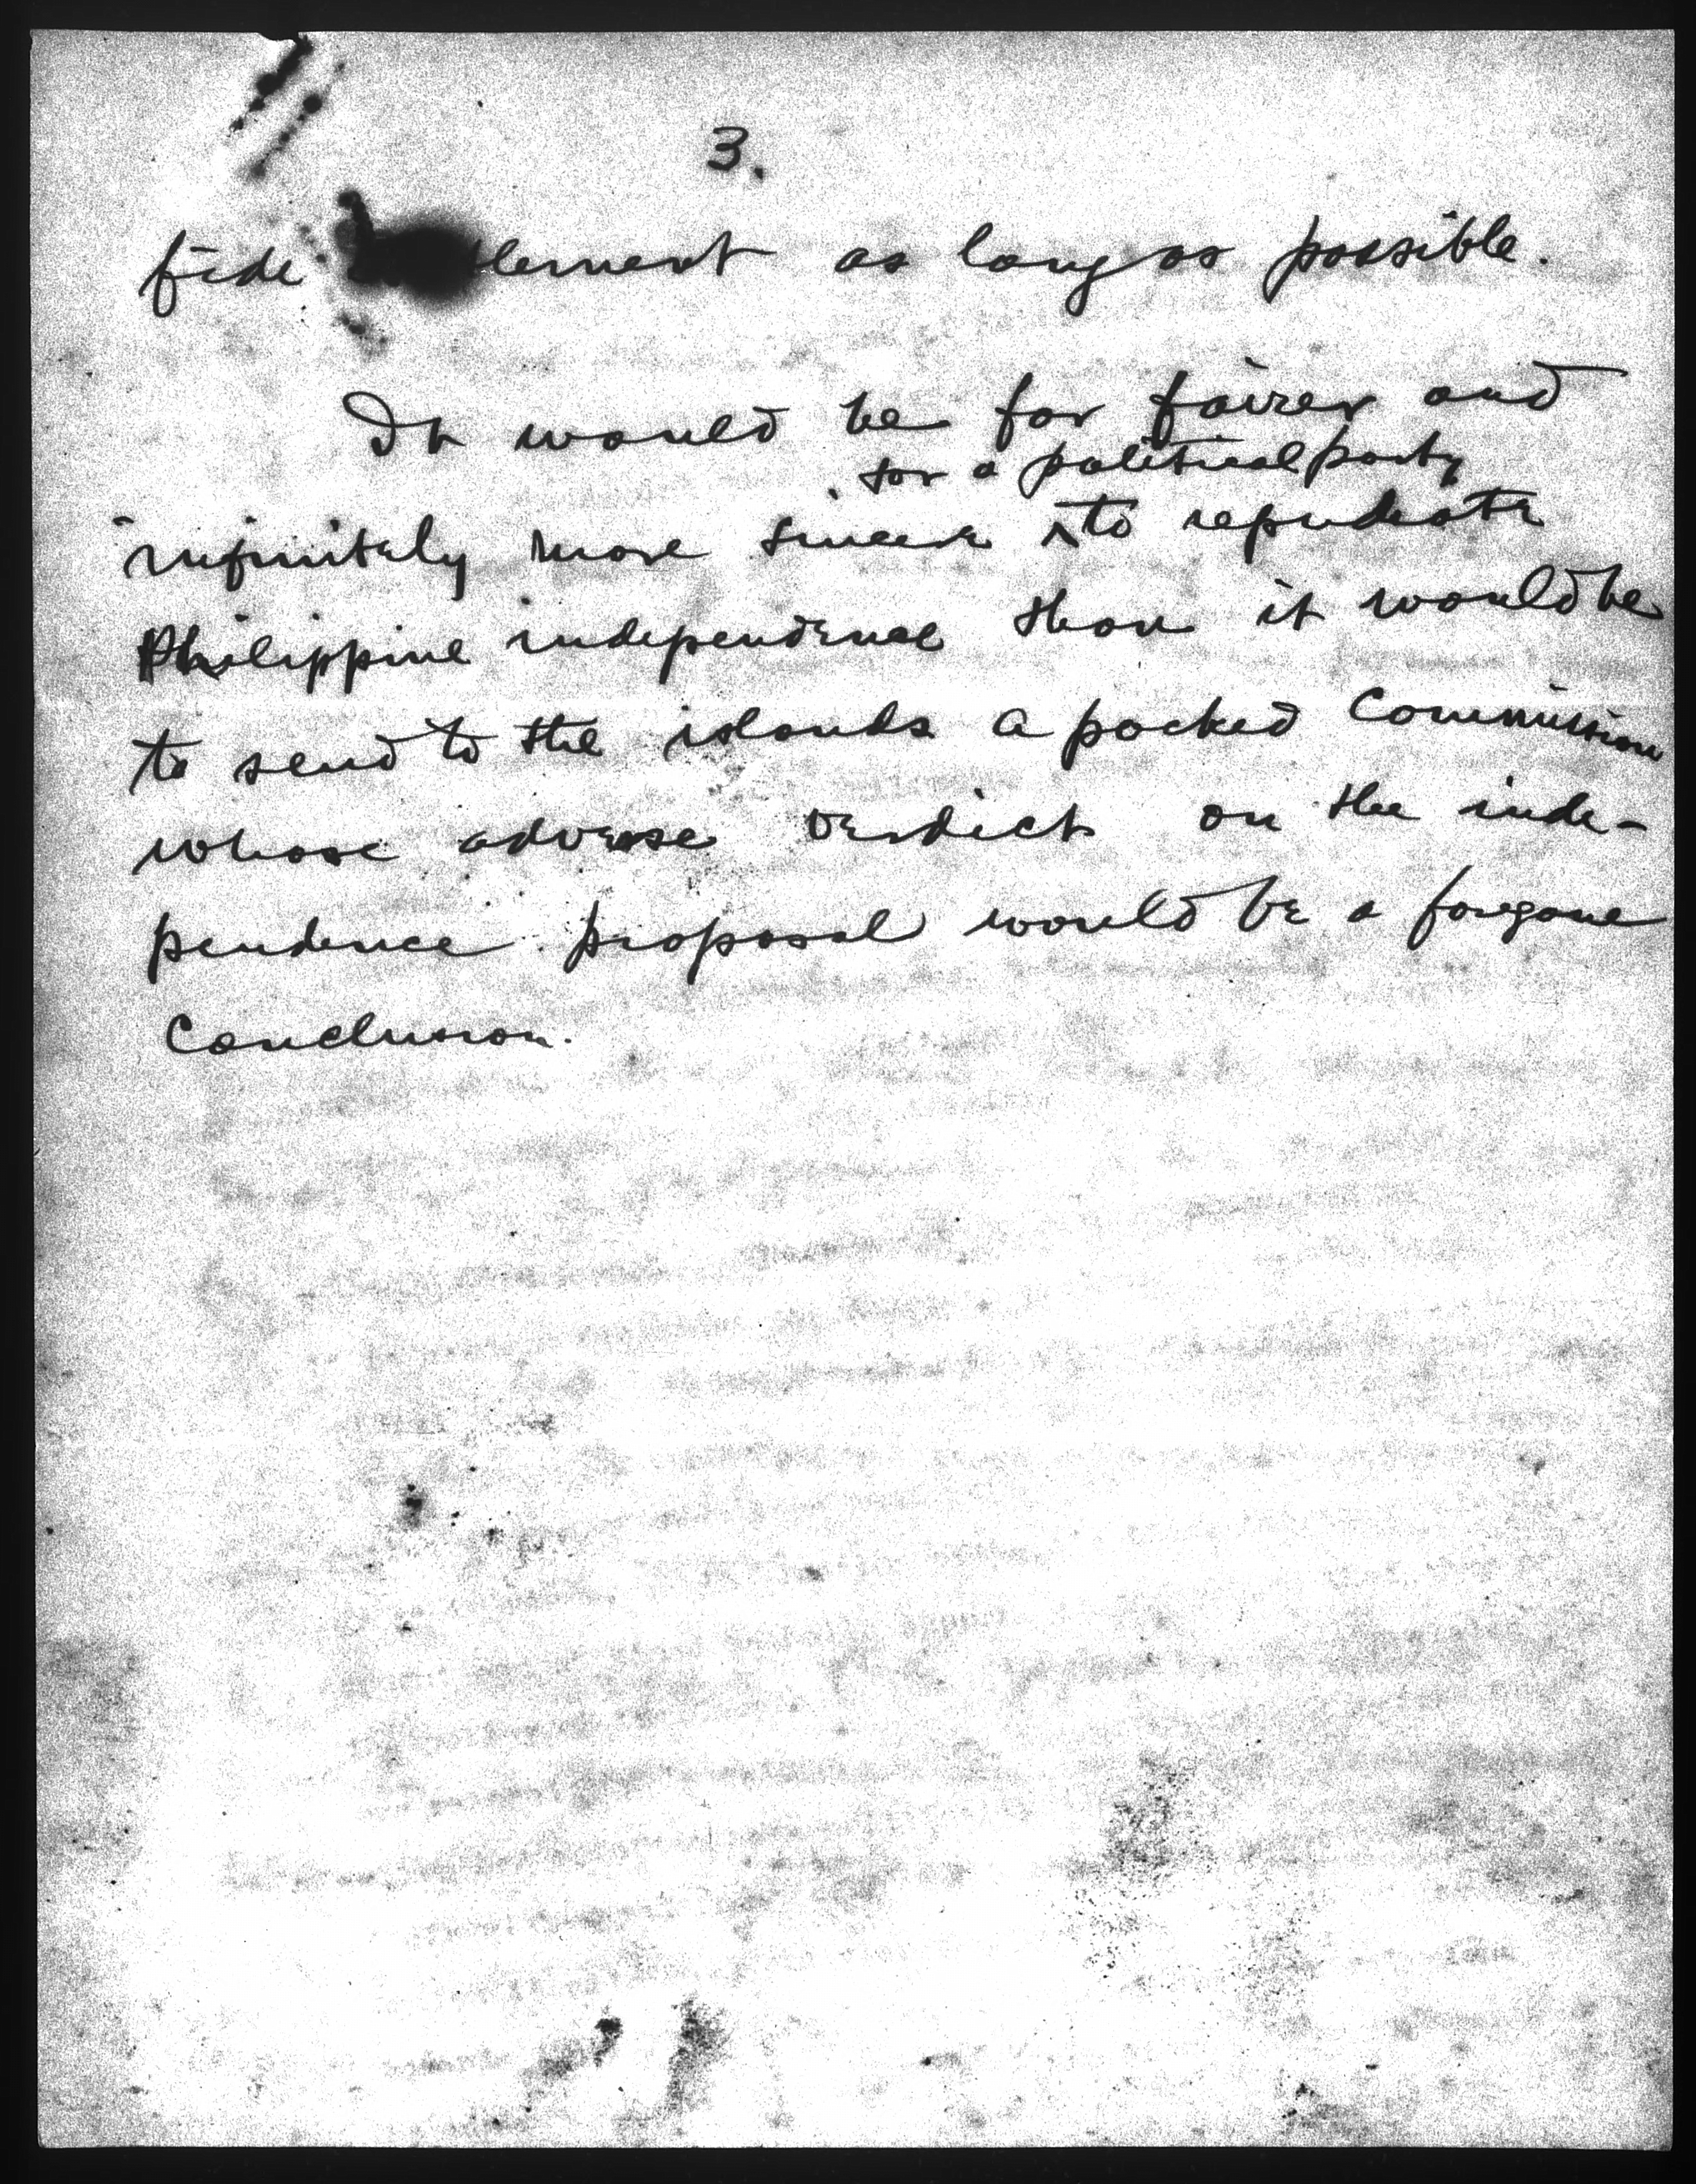 3.
fide lement as long as possible.
It would be far fairer and
for a political party
infinitely more sincere ^ to repudiate
Philippine independence than it would be
to send to the islands a packed Commission
whose adverse verdict on the inde-
pendence proposal would be a foregone
Conclusion.